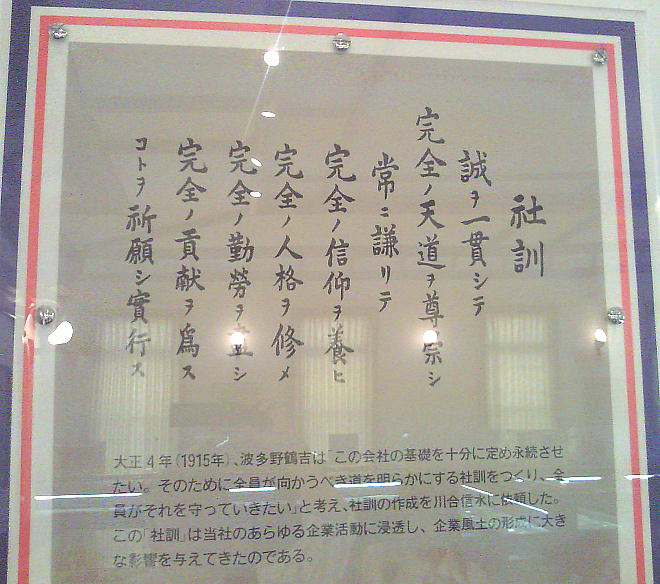 社訓
誠ヲ一貫シテ
完全ノ天道ヲ尊崇シ
常ニ謙リテ
完全ノ信仰ヲ養ヒ
完全ノ人格ヲ修メ
完全ノ勤勞ヲ盡シ
完全ノ貢献ヲ爲ス
コトヲ祈願シ實行ス
大正4年(1915年)、波多野鶴吉は「この会社の基礎を十分に定め永続させ
たい。そのために全員が向かうべき道を明らかにする社訓をつくり、全
員がそれを守っていきたい」と考え、社訓の作成を川合信水に依頼した。
この「社訓」は当社のあらゆる企業活動に浸透し、企業風土の形成に大き
な影響を与えてきたのである。